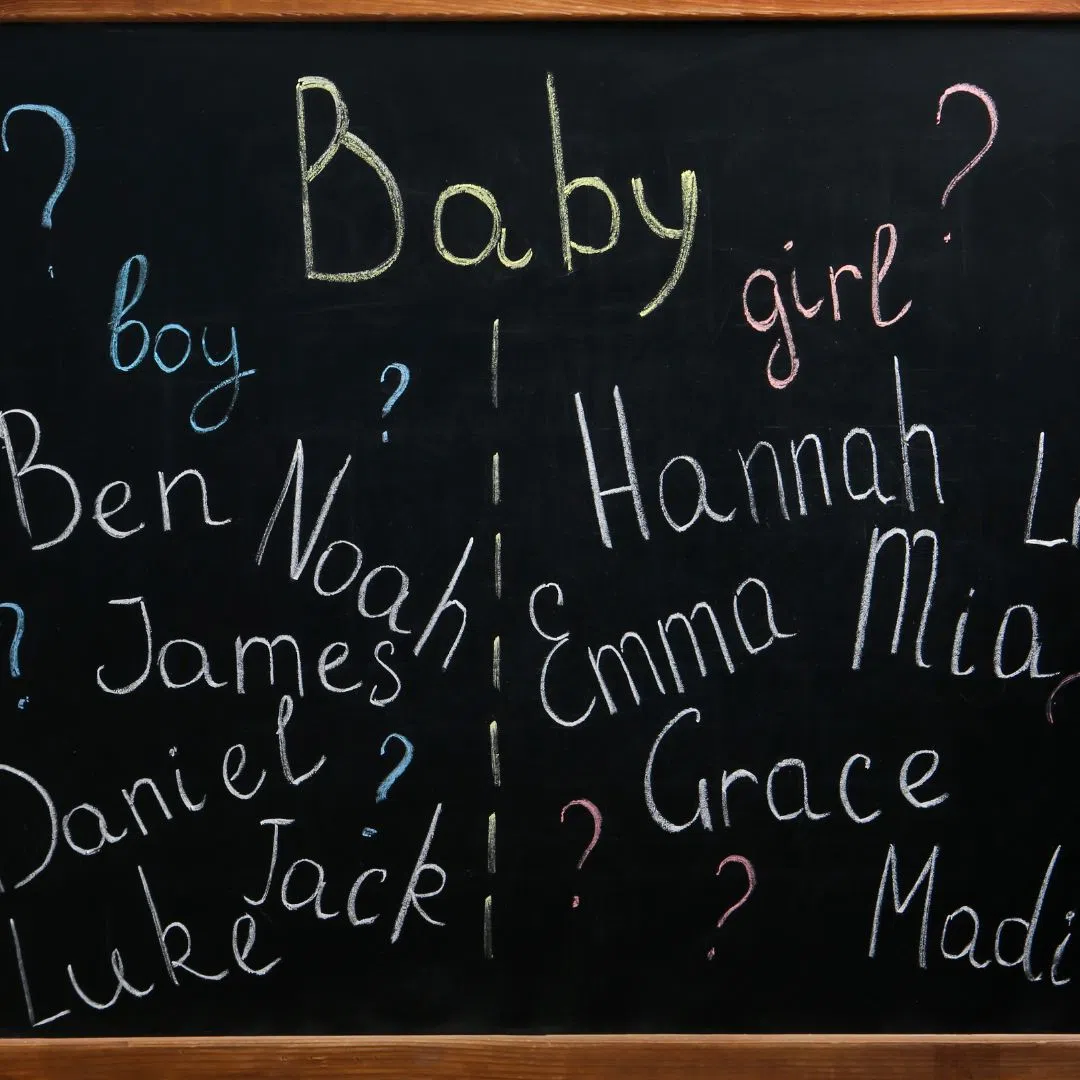 ? Baby ?
boy
girl
?
Ben
Noah
?
James
Daniel
?
Jack
Luke
Hannah
Emma
Mia
Grace
?
?